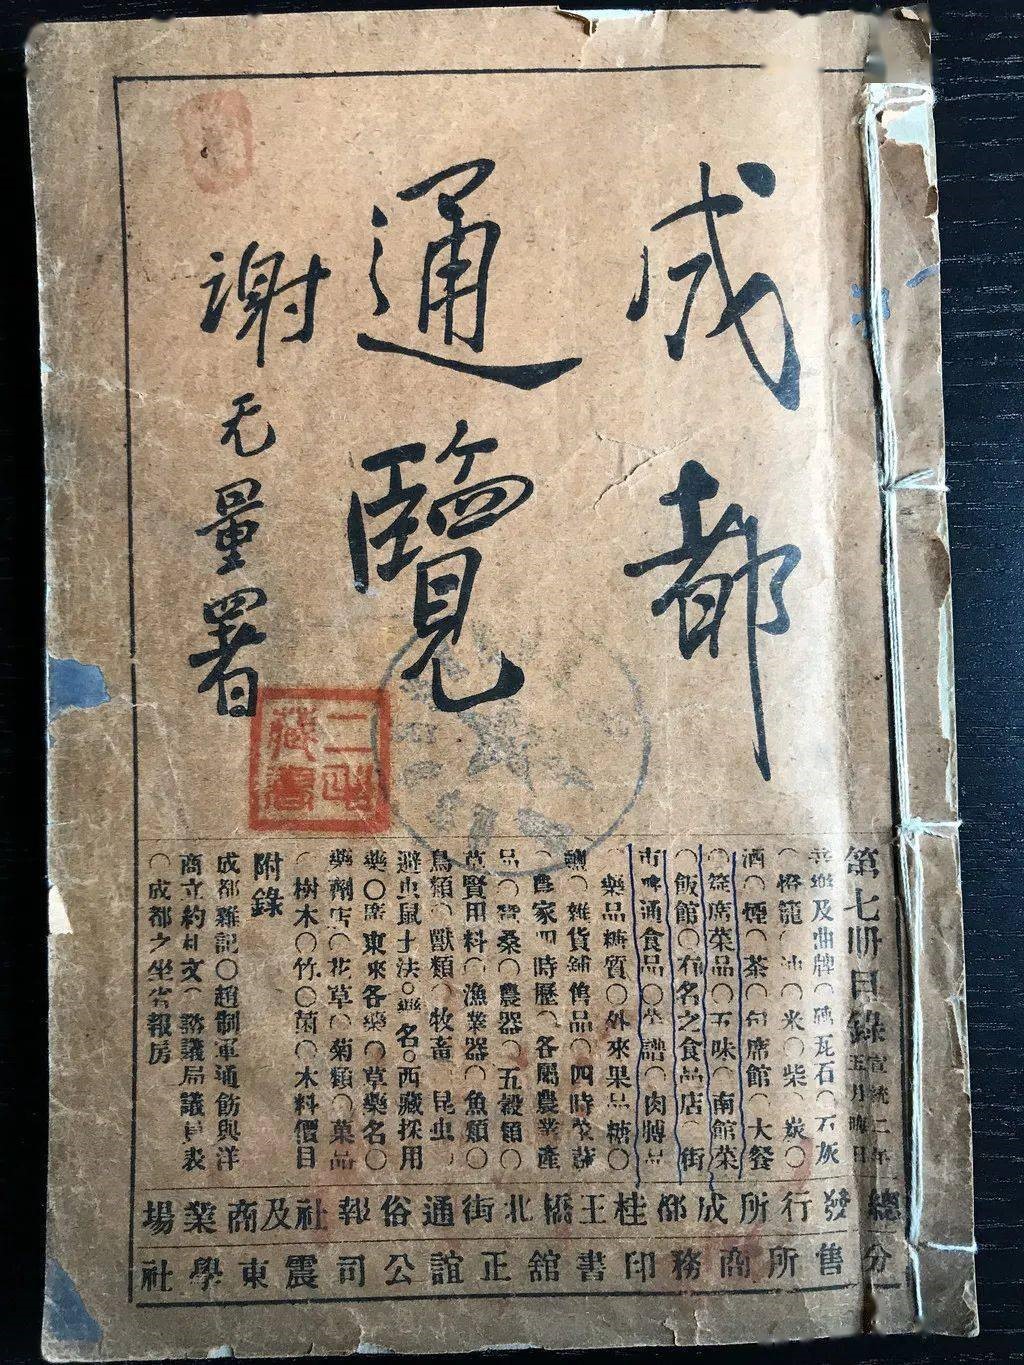 成都
通覽
謝无量署
二酉藏書
第七册目錄 宣統二年五月晦日
及曲牌○磚瓦石○石灰
○燈籠○油○米○柴○炭○
酒○煙○茶○包席館○大餐
○筵席菜品○五味○南館菜
○飯館○有名之食品店○街
市啤通食品○坐譜○肉牌品
○藥品糖質○外來果品糖○
鹽○雜貨鋪售品○四時菜蔬
○農家四時歷○各屬農業產
品○蠶桑○農器○五穀類○
草賢用料○漁業器○魚類○
鳥類○獸類○牧畜 昆虫
避虫鼠土法○藥名○西藏採用
藥○廣東來各藥○草藥名○
藥劑店○花草○菊類○菓品
○樹木○竹○菌○木料價目
附錄
成都雜記○趙制軍通飭與洋
商立約札文○諮議局議員表
○成都之坐省報房
總發行所成都桂王橋北街通俗報社及商業場
分售所商務印書館正誼公司震東學社